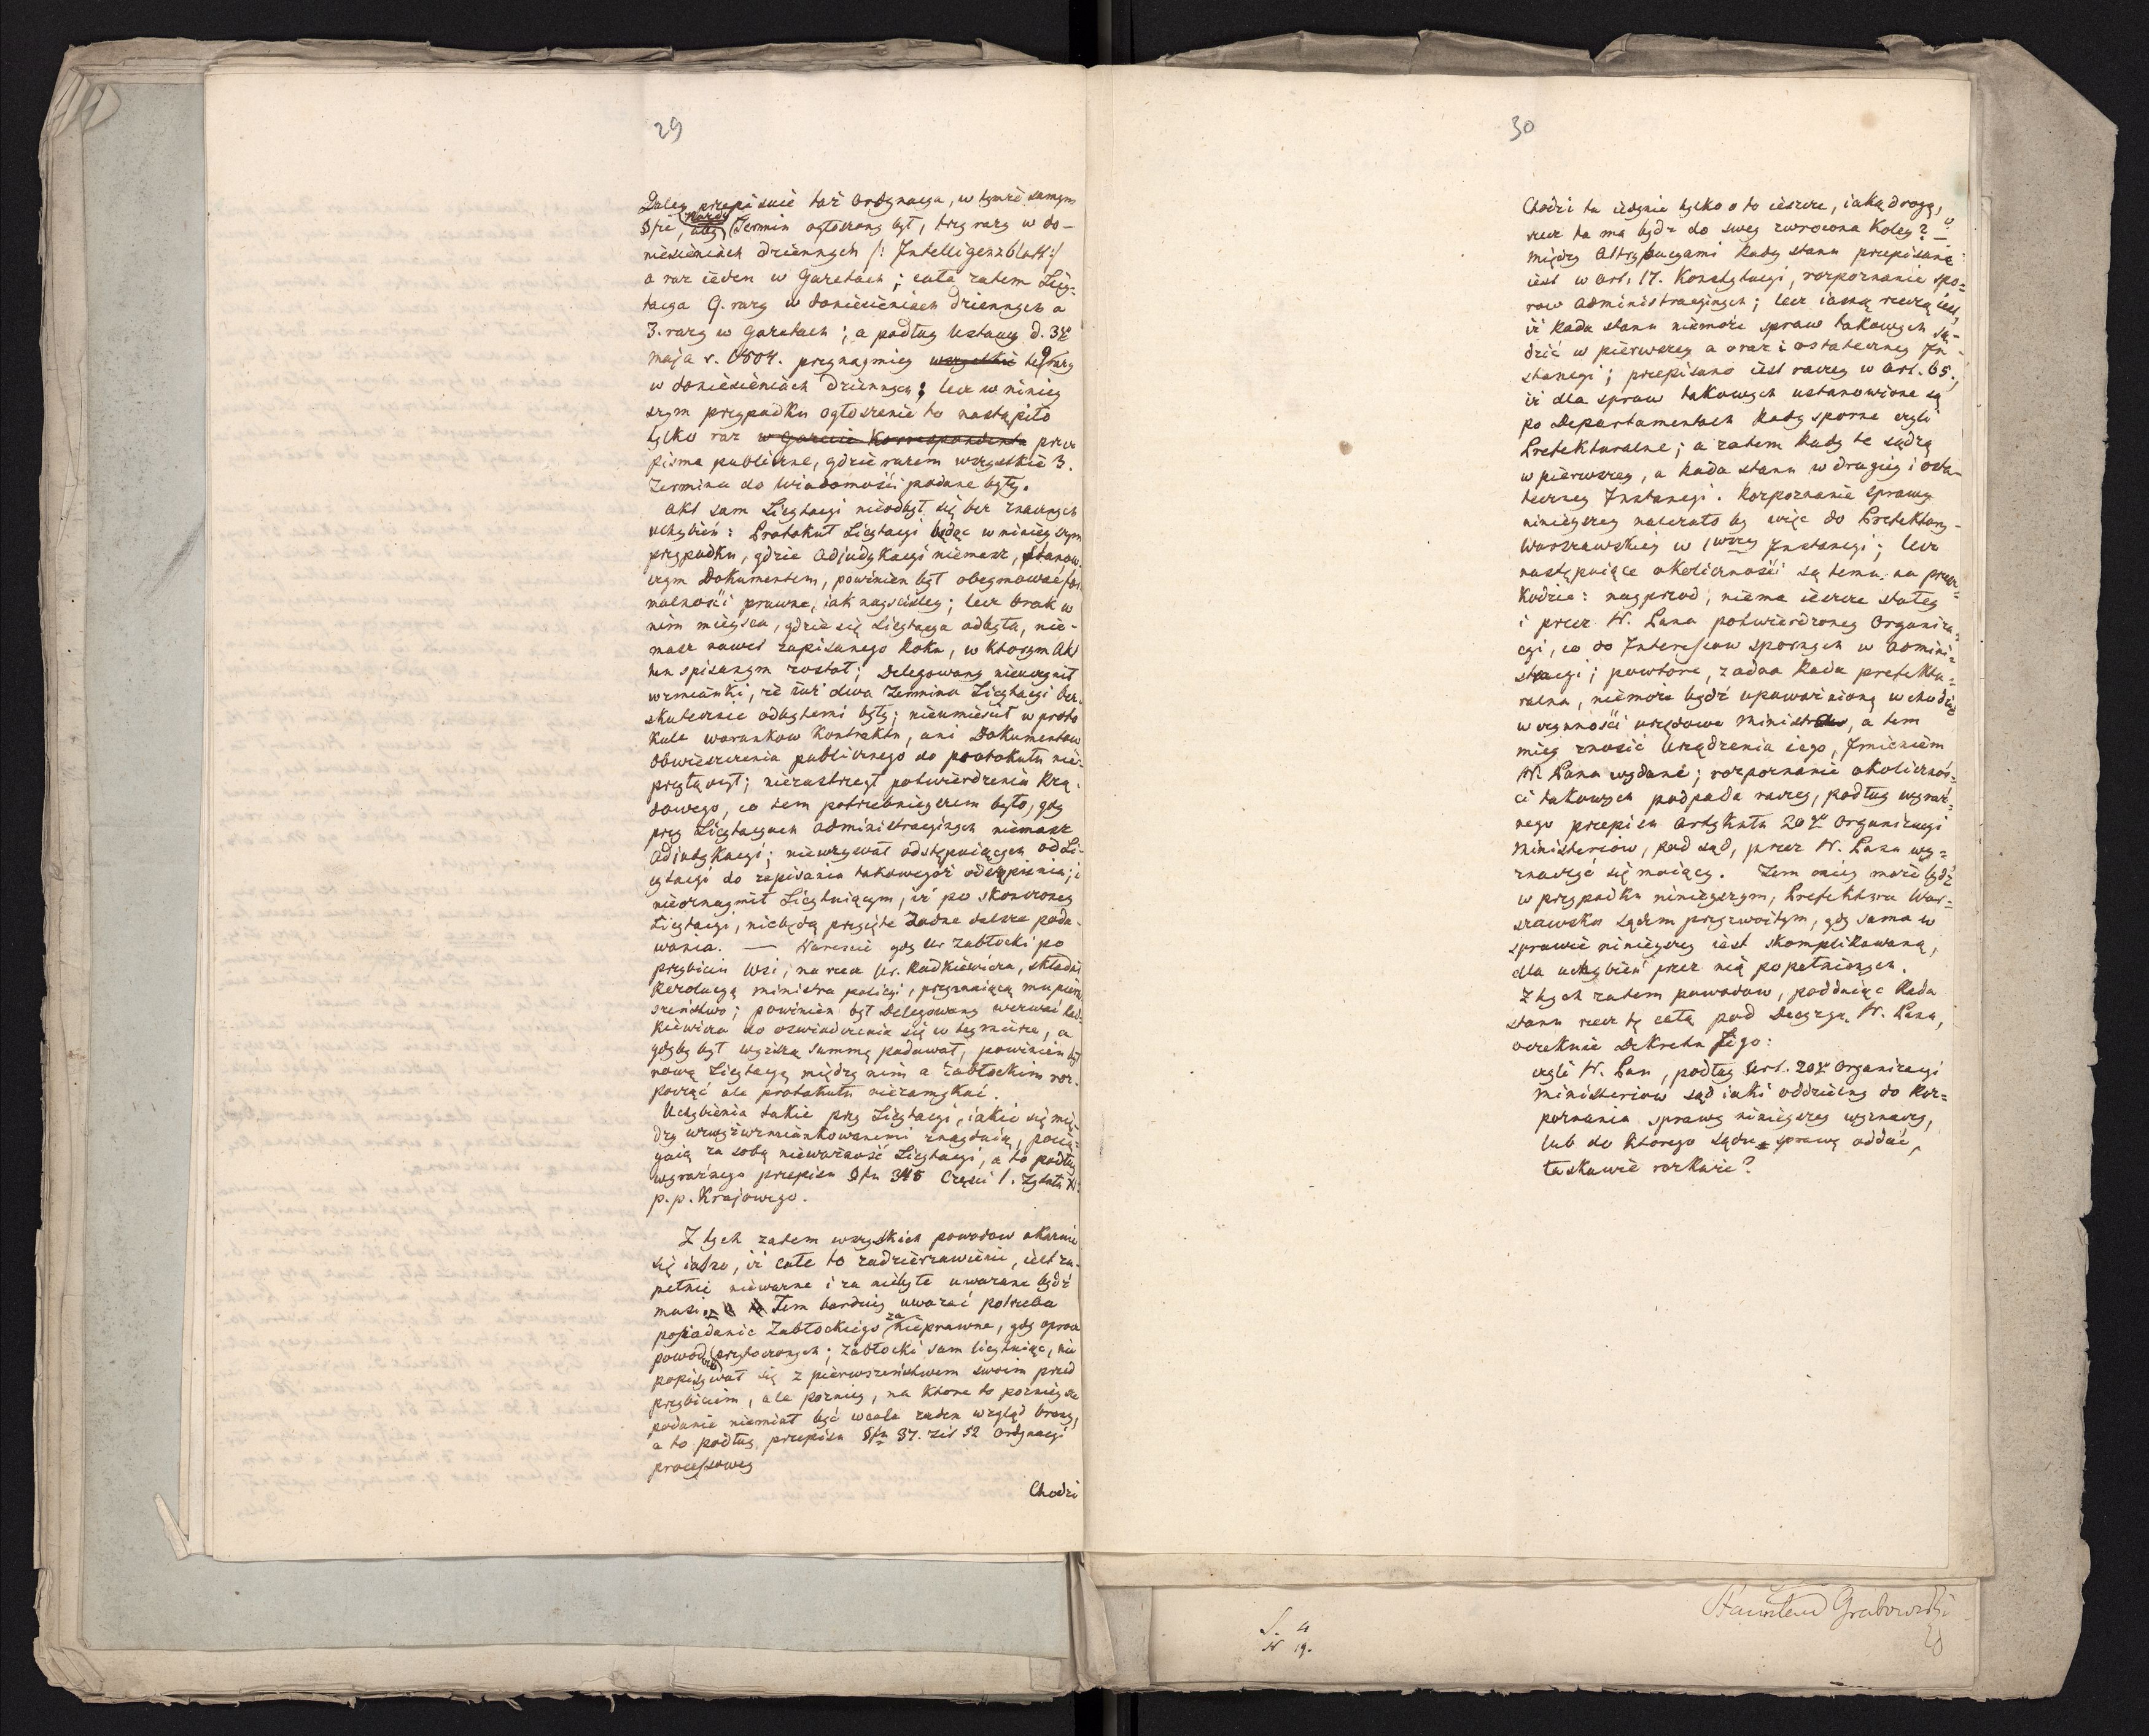 29
Daley przepisuie taż Ordynacya, w tymże samym
§fie, aby każdy Termin ogłoszony był, trzy razy w do-
niesieniach dziennych /: Intelligenzblatt :/
a raz ieden w Gazetach; cała zatem Licy-
tacya 9. razy w doniesieniach dziennych a
3. razy w Gazetach; a podług Ustawy d. 3go
maja r. 1804. przynaymiey wszystkie te 9 razy
w doniesieniach dziennych; lecz w niniey
szym przypadku ogłoszenie to nastąpiło
tylko raz w Gazecie Korrespondenta przez
pisma publiczne, gdzie razem wszystkie 3.
Termina do wiadomości podane były.
Akt sam Licytacyi nieodbył się bez znacznych
uchybień: Protokuł Licytacyi będąc w ninieyszym
przypadku, gdzie Adjudykacyi niemasz, stanow-
czym Dokumentem, powinien był obeymować for-
malności prawne, iak nayściśley; lecz brak w
nim mieysca, gdzie się Licytacya odbyła, nie-
masz nawet zapisanego Roku, w ktorym Akt
ten spisanym został; Delegowany nieuczynił
wzmianki, że iuż dwa Termina Licytacyi bez-
skutecznie odbytemi były; nieumieścił w proto
kule warunkow Kontraktu, ani Dokumentow
obwieszczenia publicznego do protokułu nie-
przyłączył; niezastrzegł potwierdzenia Rzą-
dowego, co tem potrzebnieyszem było, gdy
przy Licytacyach administracyinych niemasz
Adjudykacyi; niewzywał odstępuiących od Li-
cytacyi do zapisania takowegoż odstąpienia; i
nieoznaymił Licytuiącym, iż po skonczoney
Licytacyi, niebędą przyięte żadne dalsze poda-
wania. — Nareszcie gdy Ur Zabłocki po
przybiciu Wsi, na rzecz Ur. Radkiewicza, składał
Rezolucyą Ministra policyi, przyznaiącą mu pierw
szeństwo; powinien był Delegowany wezwać Rad-
kiewicza do oświadczenia się w tey mierze, a
gdyby był wyższą summę podawał, powinien był
nową Licytacyą między nim a Zabłockim roz-
począć ale protokułu niezamykać.
Uchybienia takie przy Licytacyi, iakie się mię-
dzy wzwyżwzmiankowanemi znayduią, pocią-
gaią za sobą nieważność Licytacyi, a to podług
wyraźnego przepisu §fu 345 Części 1. Tytułu XI
p. p. Krajowego.
Z tych zatem wszystkich powodow okazuie
się iasno, iż całe to zadzierżawienie, iest zu-
pełnie nieważne i za niebyłe uważane bydź
musi. Tem bardziey uważać potrzeba
posiadanie Zabłockiego za nieprawne, gdy oprocz
powodow przytoczonych; Zabłocki sam licytuiąc, nie
popisywał się z pierwszeństwem swoim przed
przybiciem, ale pozniey, na ktore to poznieysze
podanie niemiał być wcale żaden wzgląd brany,
a to podług przepisu §fu 37. Tit 52 Ordynacyi
processowey
Chodzi
30
Chodzi tu iedynie tylko o to ieszcze, iaką drogą,
rzecz ta ma bydź do swey zwrocona Koley? —
między Attrybucyami Rady stanu przepisane
iest w Art. 17. Konstytucyi, rozpoznanie spo=
row administracyinych; lecz iasną rzeczą iest,
iż Rada stanu niemoże spraw takowych są-
dzić w pierwszey a oraz i ostateczney In-
stancyi; przepisano iest raczey w Art. 65.,
iż dla spraw takowych ustanowione są
po Departamentach Rady sporne czyli
Prefekturalne; a zatem Rady te sądzą
w pierwszey, a Rada stanu w drugiey i osta-
teczney Instancyi. Rozpoznanie sprawy
ninieyszey należało by więc do Prefektury
Warszawskiey w 1wszey Instancyi; lecz
następuiące okoliczności są temu na przesz=
kodzie: nayprzod, niema ieszcze stałey
i przez W. Pana potwierdzoney Organiza=
cyi, co do Interessow spornych w Admini=
stracyi; powtore, żadna Rada prefektu=
ralna, niemoże bydź upoważnioną wchodzić
w czynności urzędowe Ministrow, a tem
mniey znosić Urządzenia iego, Imieniem
W. Pana wydane; rozpoznanie okolicznos=
ci takowych podpada raczey, podług wyraź=
nego przepisu Artykułu 20go Organizacyi
Ministeriow, pod sąd, przez W. Pana wy=
znaczyć się maiący. Tem mniey może bydź
w przypadku ninieyszym, Prefektura War=
szawska sądem przyzwoitym, gdy sama w
sprawie ninieyszey iest skomplikowaną,
dla uchybień przez nią popełnionych.
Z tych zatem powodow, poddaiąc Rada
stanu rzecz tę całą pod Decyzyą W. Pana,
oczekuie Dekretu Jego:
czyli W. Pan, podług Art. 20go Organizacyi
Ministeriow sąd iaki oddzielny do Roz=
poznania sprawy ninieyszey wyznaczy,
lub do ktorego sądu sprawę oddać,
łaskawie rozkaże?
Stanisław Grabowski
20
S. 4
N 19.